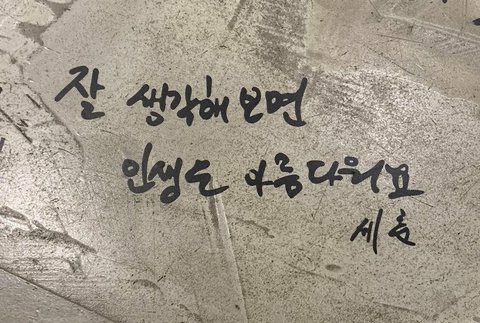 잘 생각해보면
인생은 아름다워요
세효